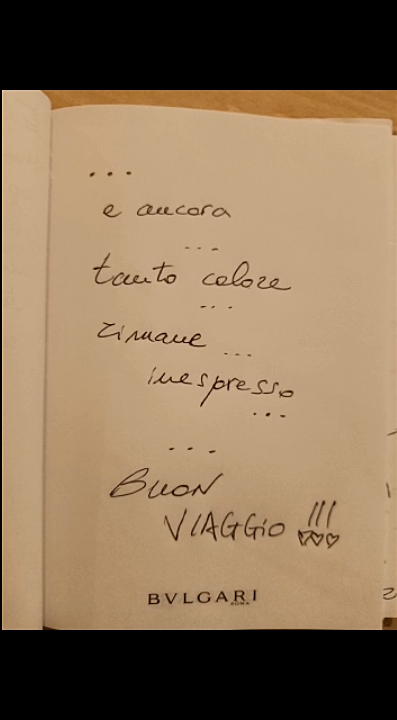 ...
e ancora
...
tanto calore
...
rimane ...
inespresso
...
...
BUON
VIAGGIO !!!
BVLGARI
ROMA